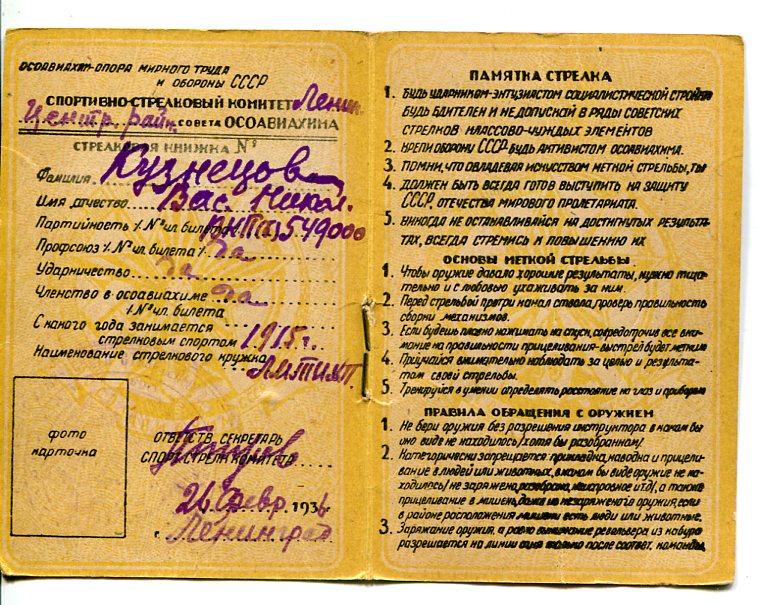 ОСОАВИАХИМ-ОПОРА МИРНОГО ТРУДА
И ОБОРОНЫ СССР
СПОРТИВНО-СТРЕЛКОВЫЙ КОМИТЕТ Ленин.
Центр. райн. СОВЕТА ОСОАВИАХИМА
СТРЕЛКОВАЯ КНИЖКА №
Фамилия Кузнецов
Имя отчество Вас. Никол.
Партийность и № чл. билета ВКП(б) 549000
Профсоюз и № чл. билета да
Ударничество да
Членство в осоавиахиме да
и № чл. билета
С какого года занимается
стрелковым спортом 1915 г.
Наименование стрелкового кружка
фото
карточка
ОТВЕТСТВ. СЕКРЕТАРЬ
СПОР. СТРЕЛК. КОМИТЕТА
26 февр. 1934
г. Ленинград
ПАМЯТКА СТРЕЛКА
1. БУДЬ УДАРНИКОМ-ЭНТУЗИАСТОМ СОЦИАЛИСТИЧЕСКОЙ СТРОЙКИ
БУДЬ БДИТЕЛЕН И НЕ ДОПУСКАЙ В РЯДЫ СОВЕТСКИХ
СТРЕЛКОВ КЛАССОВО-ЧУЖДЫХ ЭЛЕМЕНТОВ
2. КРЕПИ ОБОРОНУ СССР-БУДЬ АКТИВИСТОМ ОСОАВИАХИМА.
3. ПОМНИ, ЧТО ОВЛАДЕВАЯ ИСКУССТВОМ МЕТКОЙ СТРЕЛЬБЫ, ТЫ
4. ДОЛЖЕН БЫТЬ ВСЕГДА ГОТОВ ВЫСТУПИТЬ НА ЗАЩИТУ
СССР, ОТЕЧЕСТВА МИРОВОГО ПРОЛЕТАРИАТА.
5. НИКОГДА НЕ ОСТАНАВЛИВАЙСЯ НА ДОСТИГНУТЫХ РЕЗУЛЬТА-
ТАХ, ВСЕГДА СТРЕМИСЬ К ПОВЫШЕНИЮ ИХ
ОСНОВЫ МЕТКОЙ СТРЕЛЬБЫ
1. Чтобы оружие давало хорошие результаты, нужно тща-
тельно и с любовью ухаживать за ним.
2. Перед стрельбой протри канал ствола, проверь правильность
сборки механизмов.
3. Если будешь плавно нажимать на спуск, сосредоточив все вни-
мание на правильности прицеливания-выстрел будет метким
4. Приучайся внимательно наблюдать за целью и результа-
том своей стрельбы.
5. Тренируйся в умении определять расстояние на глаз и прибором
ПРАВИЛА ОБРАЩЕНИЯ С ОРУЖИЕМ
1. Не бери оружия без разрешения инструктора в каком бы
оно виде не находилось /хотя бы разобранном/.
2. Категорически запрещается прикладка, наводка и прицели-
вание в людей или животных, в каком бы виде оружие не на-
ходилось/ не заряжено, разобрано, неисправное и т.д/, а также
прицеливание в мишень, даже из незаряженого оружия, если
в районе расположения мишени есть люди или животные.
3. Заряжание оружия, а равно вынимание револьвера из кабура
разрешается на линии огня только после соответ. команды,